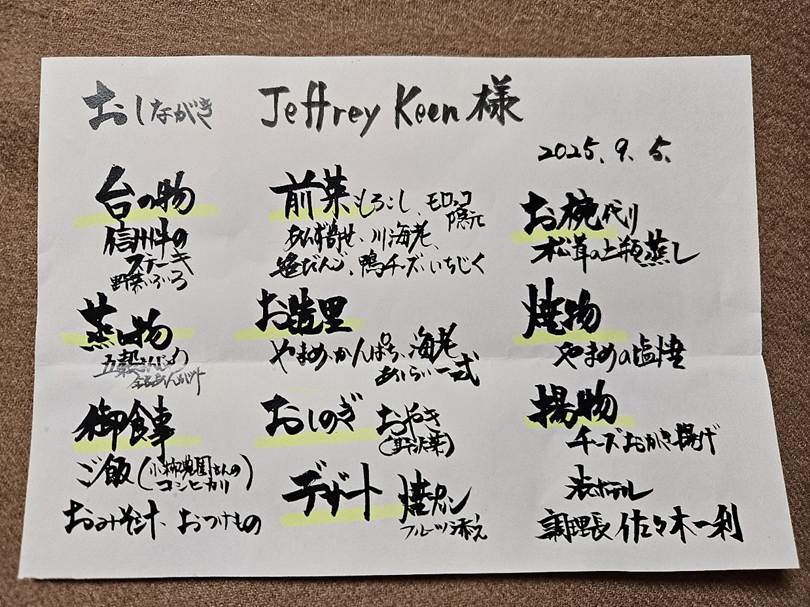 おしながき Jeffrey Keen 様
2025.9.5.
前菜 もろこし、モロッコ
隠元
あんず寄せ、川海老、
だんご、鴨チーズ、いちじく
お造里
やまめ、かんぱち、海老
あしらい一式
おしのぎ おやき
(野沢菜)
デザート 焼プリン
フルーツ添え
お椀代り
松茸の土瓶蒸し
焼物
やまめの塩焼
揚物
チーズおかき揚げ
ホテル
調理長 佐々木一利
台の物
信州牛の
ステーキ
野菜いろいろ
蒸し物
五穀
あんかけ
御食事
ご飯(小柿農園さんの
コシヒカリ)
おみそ汁、おつけもの